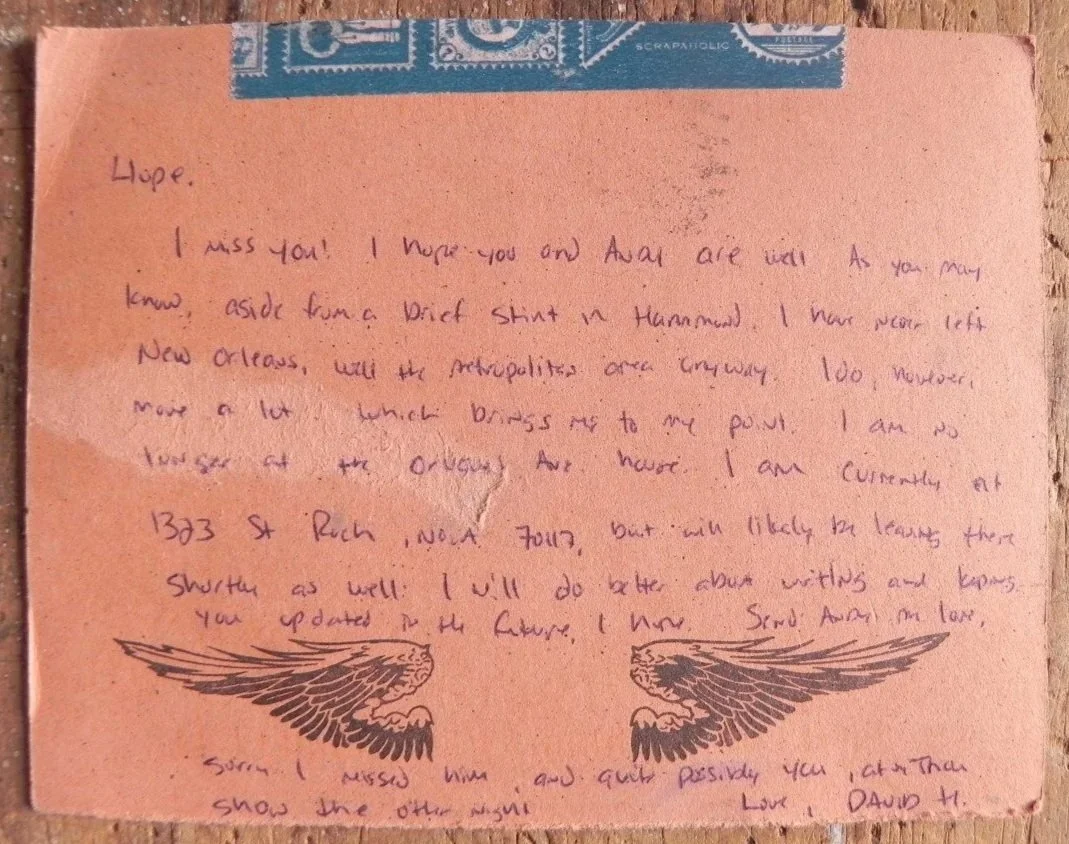 SCRAPAHOLIC
POSTAGE
Hope.
I miss you! I hope you and are well As you may
know, aside from a brief stint in Hammond, I have never left
New Orleans, well the metropolitan area anyway. I do, however,
move a lot. Which brings me to my point. I am no
longer at the Ave. house. I am currently at
1323 St Roch, NOLA 70117, but will likely be leaving there
shortly as well. I will do better about writing and keeping
you updated in the future, I hope. Send my love,
Sorry I missed him, and quite possibly you, at
show the other night
Love, DAVID H.